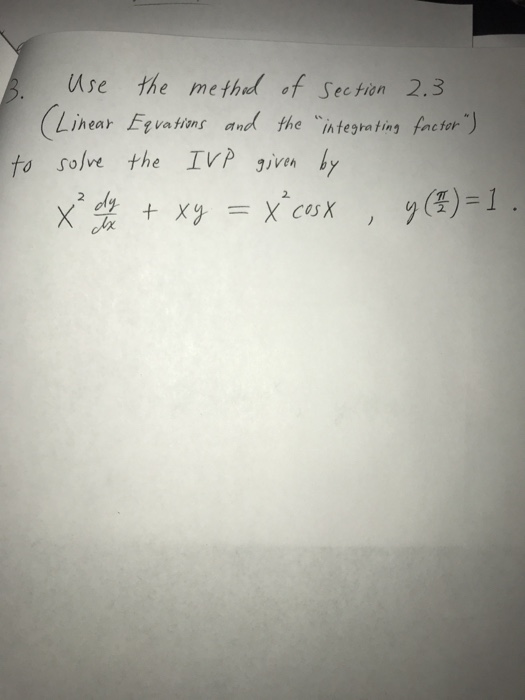 3. Use the method of Section 2.3
(Linear Equations and the "integrating factor")
to solve the IVP given by
x² dy/dx + xy = x² cosx , y(π/2) = 1 .